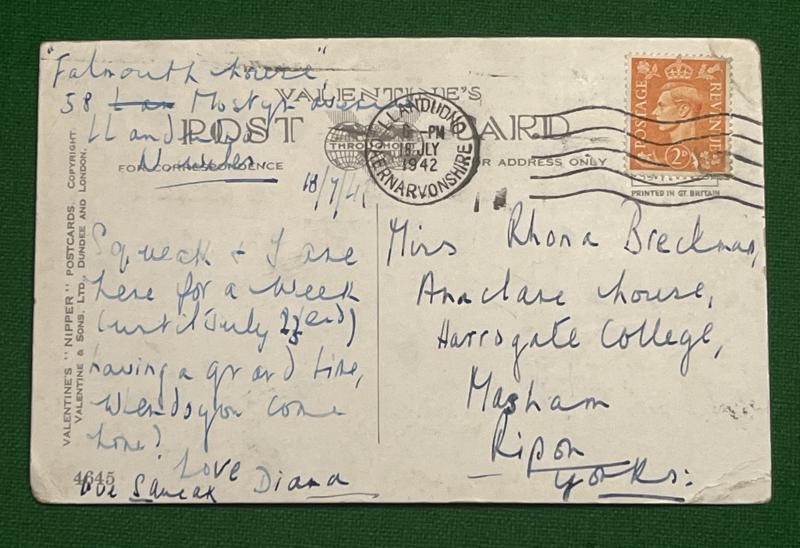 "Falmouth house"
58 Mostyn avenue
Llandudno
N. Wales
VALENTINE'S
POST CARD
THROUGHOUT
FOR CORRESPONDENCE
FOR ADDRESS ONLY
LLANDUDNO
PM
18 JLY
1942
KERNARVONSHIRE
POSTAGE REVENUE
2D
PRINTED IN GT. BRITAIN
VALENTINE'S "NIPPER" POSTCARDS. COPYRIGHT.
VALENTINE & SONS, LTD., DUNDEE AND LONDON.
18/7/42
Squeak & I are
here for a week
(until July 23rd)
having a grand time,
When do you come
home?
Love
Squeak Diana
4645
Miss Rhona Breckman,
Anaclare house,
Harrogate College,
Masham
Ripon
Yorks: